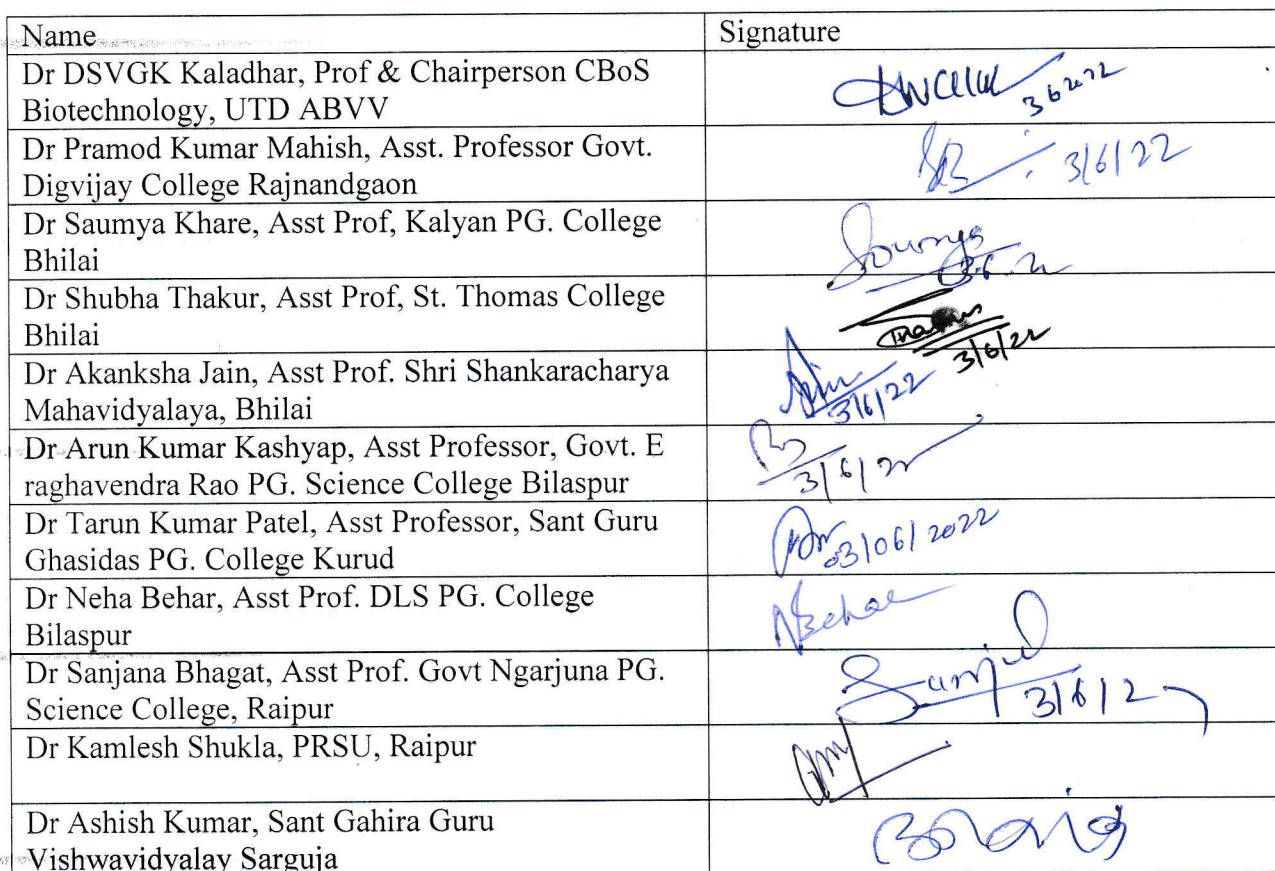 Name
Signature
Dr DSVGK Kaladhar, Prof & Chairperson CBoS
Biotechnology, UTD ABVV
3 6 2022
Dr Pramod Kumar Mahish, Asst. Professor Govt.
Digvijay College Rajnandgaon
3/6/22
Dr Saumya Khare, Asst Prof, Kalyan PG. College
Bhilai
Dr Shubha Thakur, Asst Prof, St. Thomas College
Bhilai
3/6/22
Dr Akanksha Jain, Asst Prof. Shri Shankaracharya
Mahavidyalaya, Bhilai
3/6/22
Dr Arun Kumar Kashyap, Asst Professor, Govt. E
raghavendra Rao PG. Science College Bilaspur
3/6/22
Dr Tarun Kumar Patel, Asst Professor, Sant Guru
Ghasidas PG. College Kurud
03/06/2022
Dr Neha Behar, Asst Prof. DLS PG. College
Bilaspur
NBehar
Dr Sanjana Bhagat, Asst Prof. Govt Ngarjuna PG.
Science College, Raipur
3/6/2
Dr Kamlesh Shukla, PRSU, Raipur
Dr Ashish Kumar, Sant Gahira Guru
Vishwavidyalay Sarguja